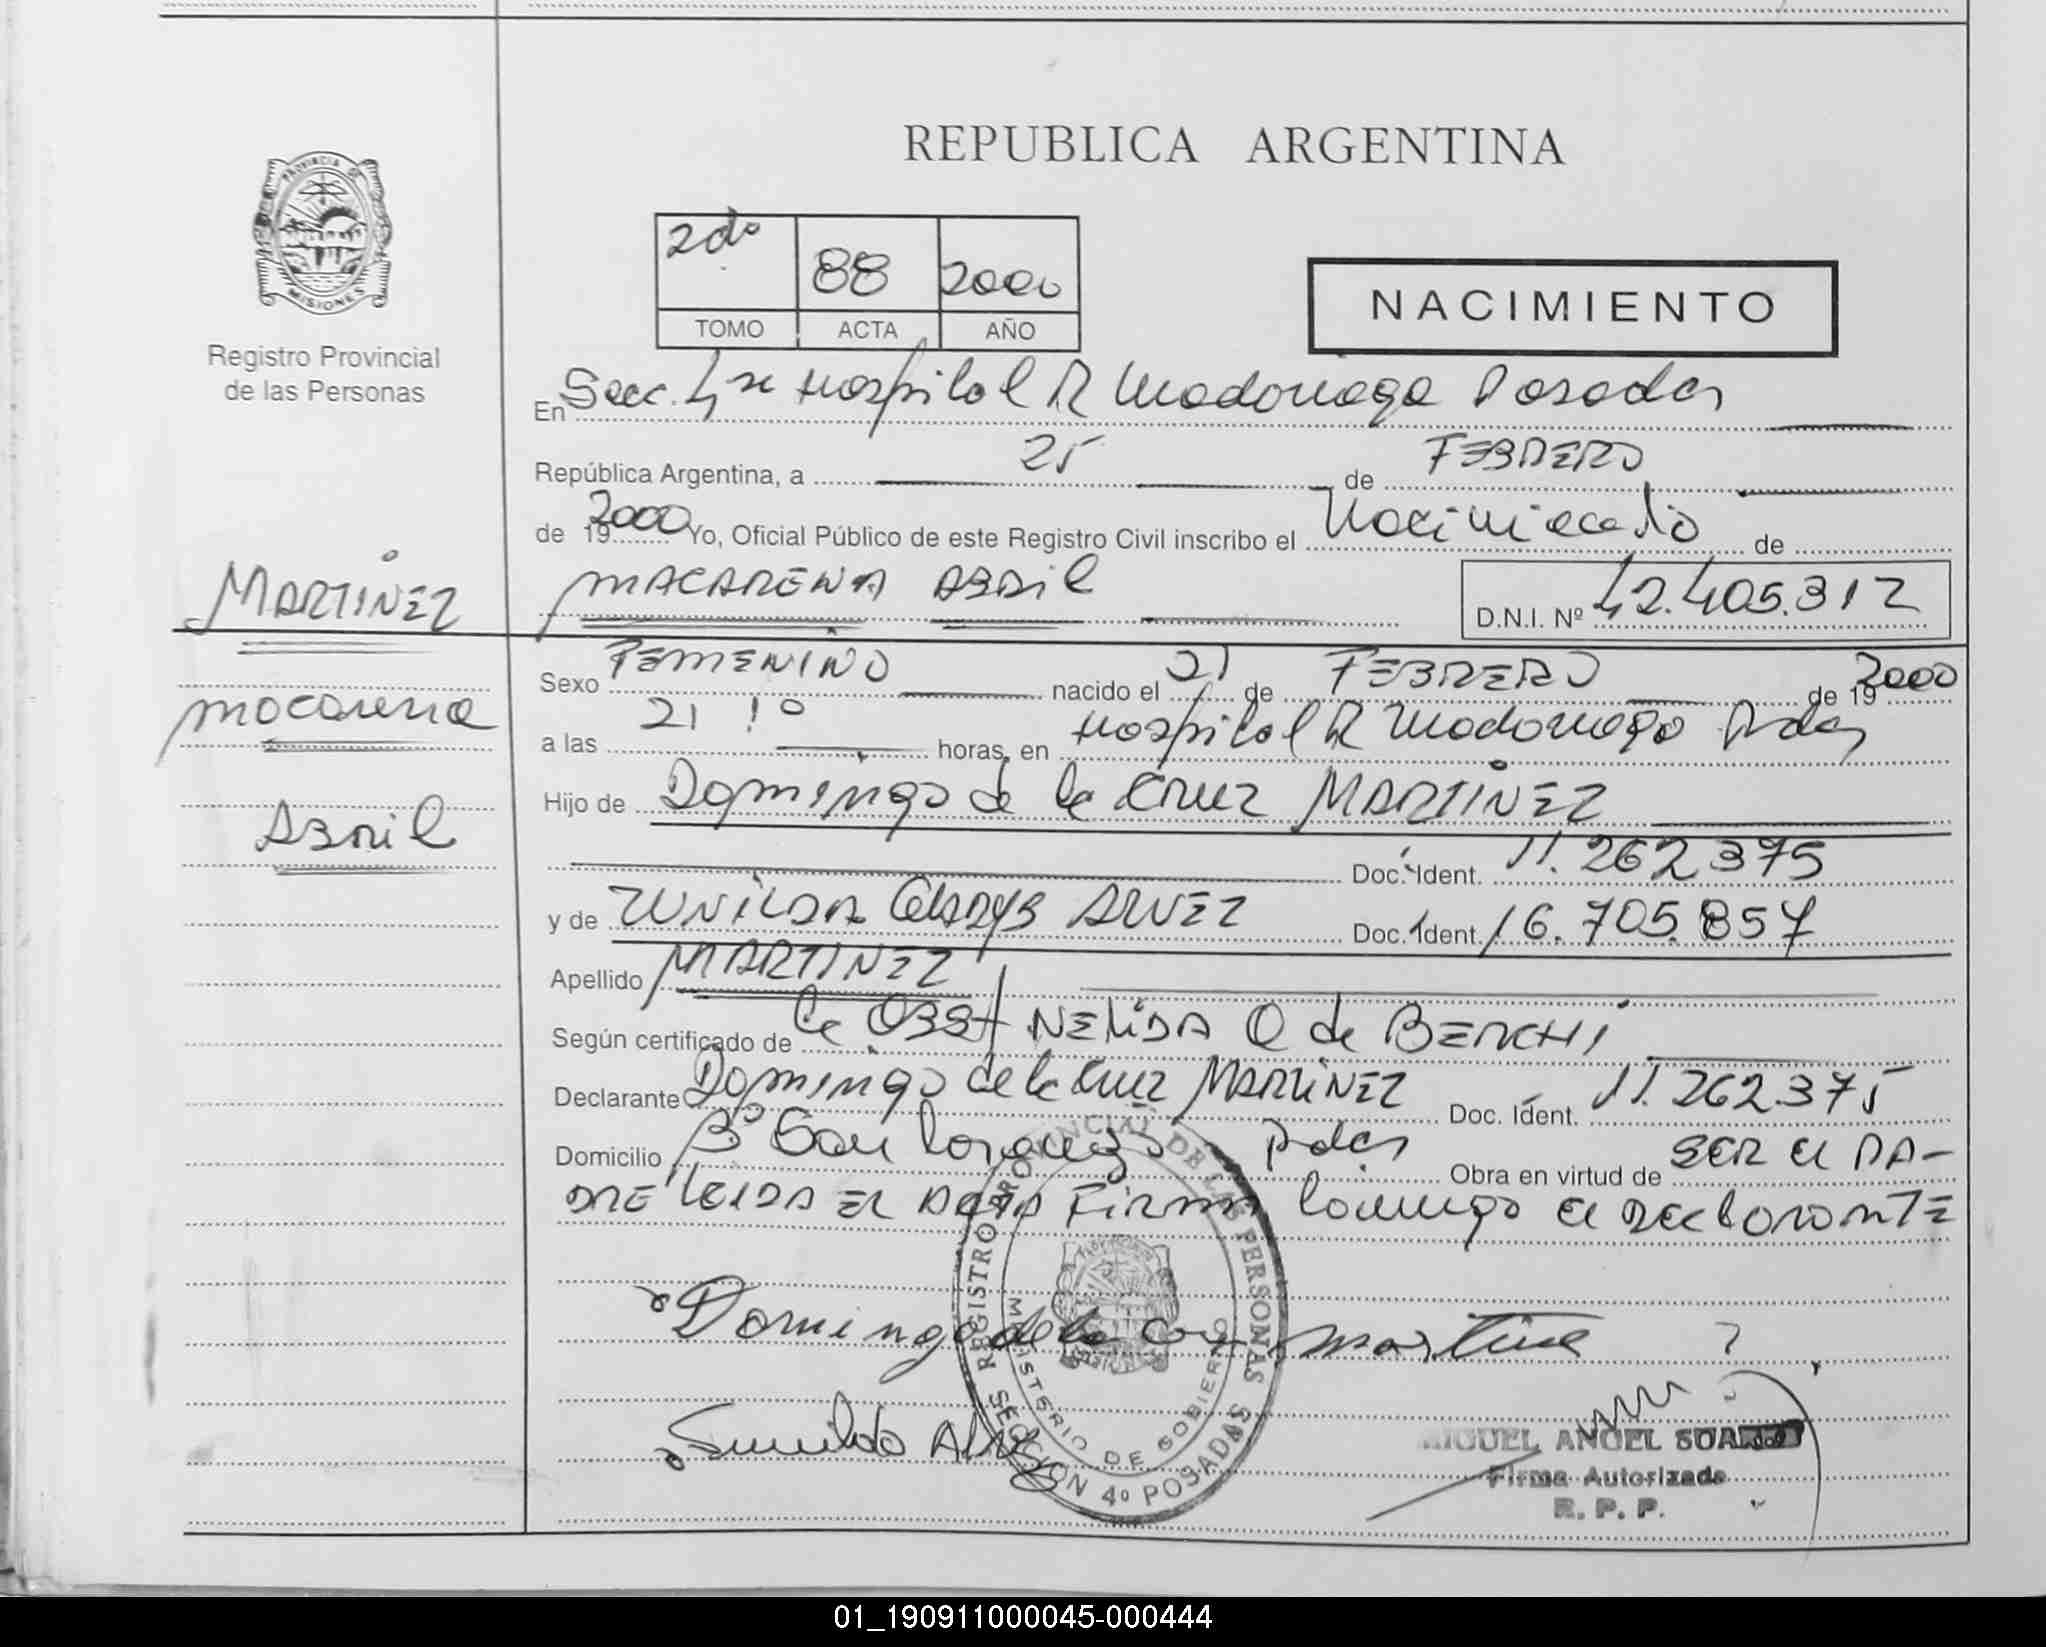 REPUBLICA ARGENTINA
PROVINCIA DE
MISIONES
Registro Provincial
de las Personas
2do 88 2000
TOMO ACTA AÑO
NACIMIENTO
En Secc. 4ta Hospital R Madariaga Posadas
República Argentina, a 25 de FEBRERO
de 19 2000 Yo, Oficial Público de este Registro Civil inscribo el Nacimiento de
MARTINEZ
MACARENA ABRIL
D.N.I. Nº 42.405.312
Sexo FEMENINO nacido el 21 de FEBRERO de 19 2000
macarena
a las 21 10 horas, en Hospital R Madariaga Pdas
Hijo de Domingo de la Cruz MARTINEZ
Abril
Doc. Ident. 11.262.375
y de ZUNILDA Gladys ALVEZ Doc. Ident. 16.705.857
Apellido MARTINEZ
Según certificado de la OBST NELIDA Q de BERCHI
Declarante Domingo de la Cruz MARTINEZ Doc. Ident. 11.262.375
Domicilio Bº San Pdas Obra en virtud de SER el PA-
DRE LEIDA EL ACTA FIRMA Conmigo el declarante
Domingo de la Cruz Martine
Sunilda Alvez
REGISTRO PROVINCIAL DE LAS PERSONAS
MINISTERIO DE GOBIERNO
SECCION 4º POSADAS
MIGUEL ANGEL SUAREZ
Firma Autorizada
R. P. P.
01_190911000045-000444